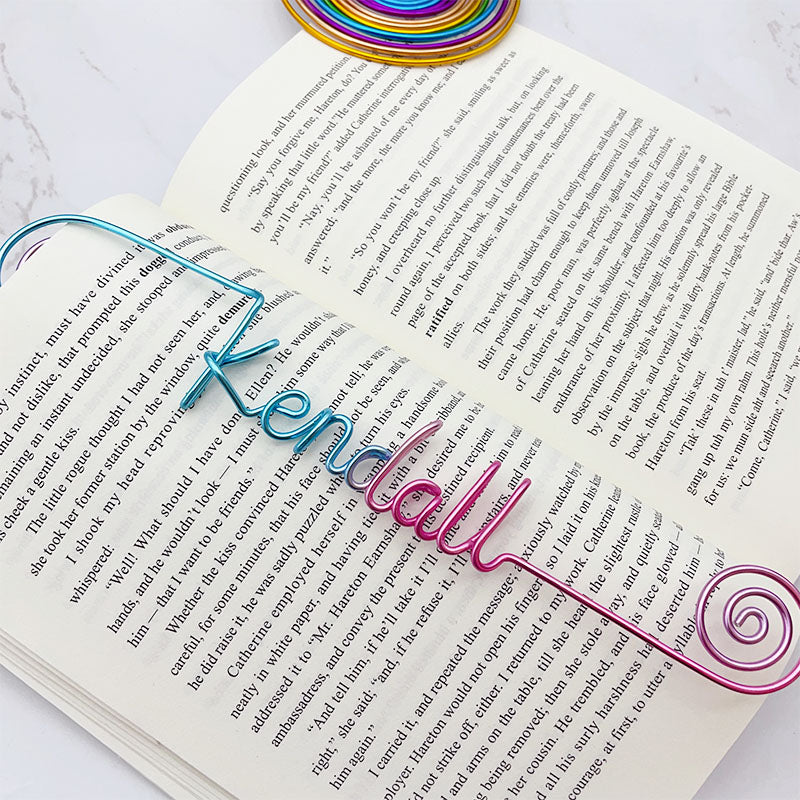 questioning look, and her murmured petition,
"Say you forgive me, Hareton, do? You
by speaking that little word." He muttered some
you'll be my friend?" added Catherine interrogatively
"Nay, you'll be ashamed of me every day of
answered: "and the more, the more you know me; and I
it."
"So you won't be my friend?" she said, smiling as sweet as
honey, and creeping close up.
I overheard no further distinguishable talk, but, on looking
round again, I perceived two such radiant countenances bent over the
page of the accepted book, that I did not doubt the treaty had been
ratified on both sides; and the enemies were, thenceforth, sworn
allies.
The work they studied was full of costly pictures; and those and
their position had charm enough to keep them unmoved till Joseph
came home. He, poor man, was perfectly aghast at the spectacle
of Catherine seated on the same bench with Hareton Earnshaw,
leaning her hand on his shoulder; and confounded at his favourite's
endurance of her proximity. It affected him too deeply to allow an
observation on the subject that night. His emotion was only revealed
by the immense sighs he drew, as he solemnly spread his large Bible
on the table, and overlaid it with dirty bank-notes from his pocket-
book, the produce of the day's transactions. At length, he summoned
Hareton from his seat.
"Tak' these in tuh t' maister, lad," he said, "and bide thar. Aw's
gang up tuh my own rahm. This hoile's neither mensful nor
for us; we mun side aht and search another."
"Come, Catherine," I said, "we
by instinct, must have divined it was
and not dislike, that prompted this dogg
maining an instant undecided, she stooped an impress
cheek a gentle kiss.
The little rogue thought I had not seen her, and,
she took her former station by the window, quite demure
I shook my head reprovin
whispered:
"Well! What should I have don Ellen? He wouldn't
hands, and he wouldn't look — I must some way
him — that I want to be friends."
Whether the kiss convinced Hare not tell; he was
careful, for some minutes, that his face should not be seen, and
he did raise it, he was sadly puzzled where his eyes.
Catherine employed herself in a handsome
neatly in white paper, and having tied it with a b
addressed it to "Mr. Hareton Earnshaw she desired me to be
ambassadress, and convey the present its destined recipient
"And tell him, if he'll take it I'll
right," she said; "and, if he refuse it, I'll upstairs, and never
him again."
I carried it, and repeated the message; anxiously watched by
Hareton would not open his fingers, so I laid it on his knee
did not strike off, either. I returned to my work. Catherine
and arms on the table, till she heard the slightest rustle
being removed; then she stole away, and quietly
her cousin. He trembled, and his face glowed — a
all his surly harshness had deserted him —
courage, at first, to utter a syllable
Kendall